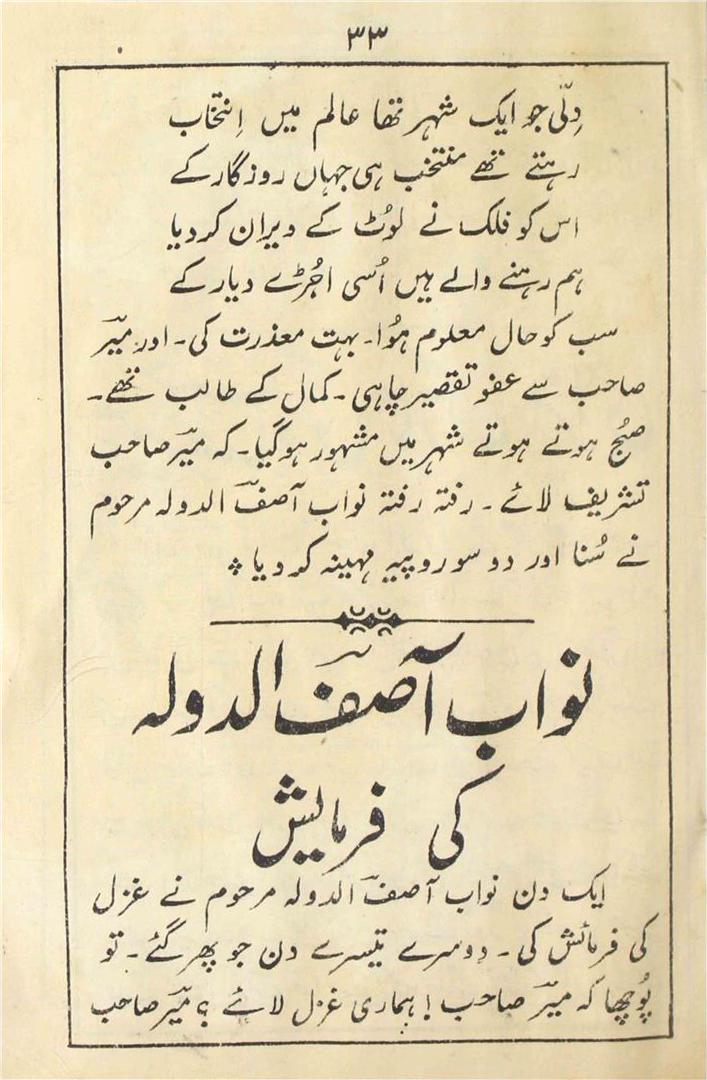 ۳۳
دِلّی جو ایک شہر تھا عالم میں اِنتخاب
رہتے تھے منتخب ہی جہاں روزگار کے
اس کو فلک نے لوُٹ کے ویران کر دیا
ہم رہنے والے ہیں اُسی اجُڑے دیار کے
سب کو حال معلوم ہوُا۔ بہت معذرت کی۔ اور میرؔ
صاحب سے عفو تقصیر چاہی۔ کمال کے طالب تھے۔
صبُح ہوتے ہوتے شہر میں مشہور ہوگیا۔ کہ میرؔ صاحب
تشریف لائے۔ رفتہ رفتہ نواب آصفؔ الدولہ مرحوم
نے سُنا اور دو سو روپیہ مہینہ کر دیا ؞
نواب آصفؔ الدولہ
کی فرمایش
ایک دن نواب آصفؔ الدولہ مرحوم نے غزل
کی فرمائش کی۔ دوسرے تیسرے دن جو پھر گئے۔ تو
پوُچھا کہ میرؔ صاحب! ہماری غزل لائے؟ میرؔ صاحب